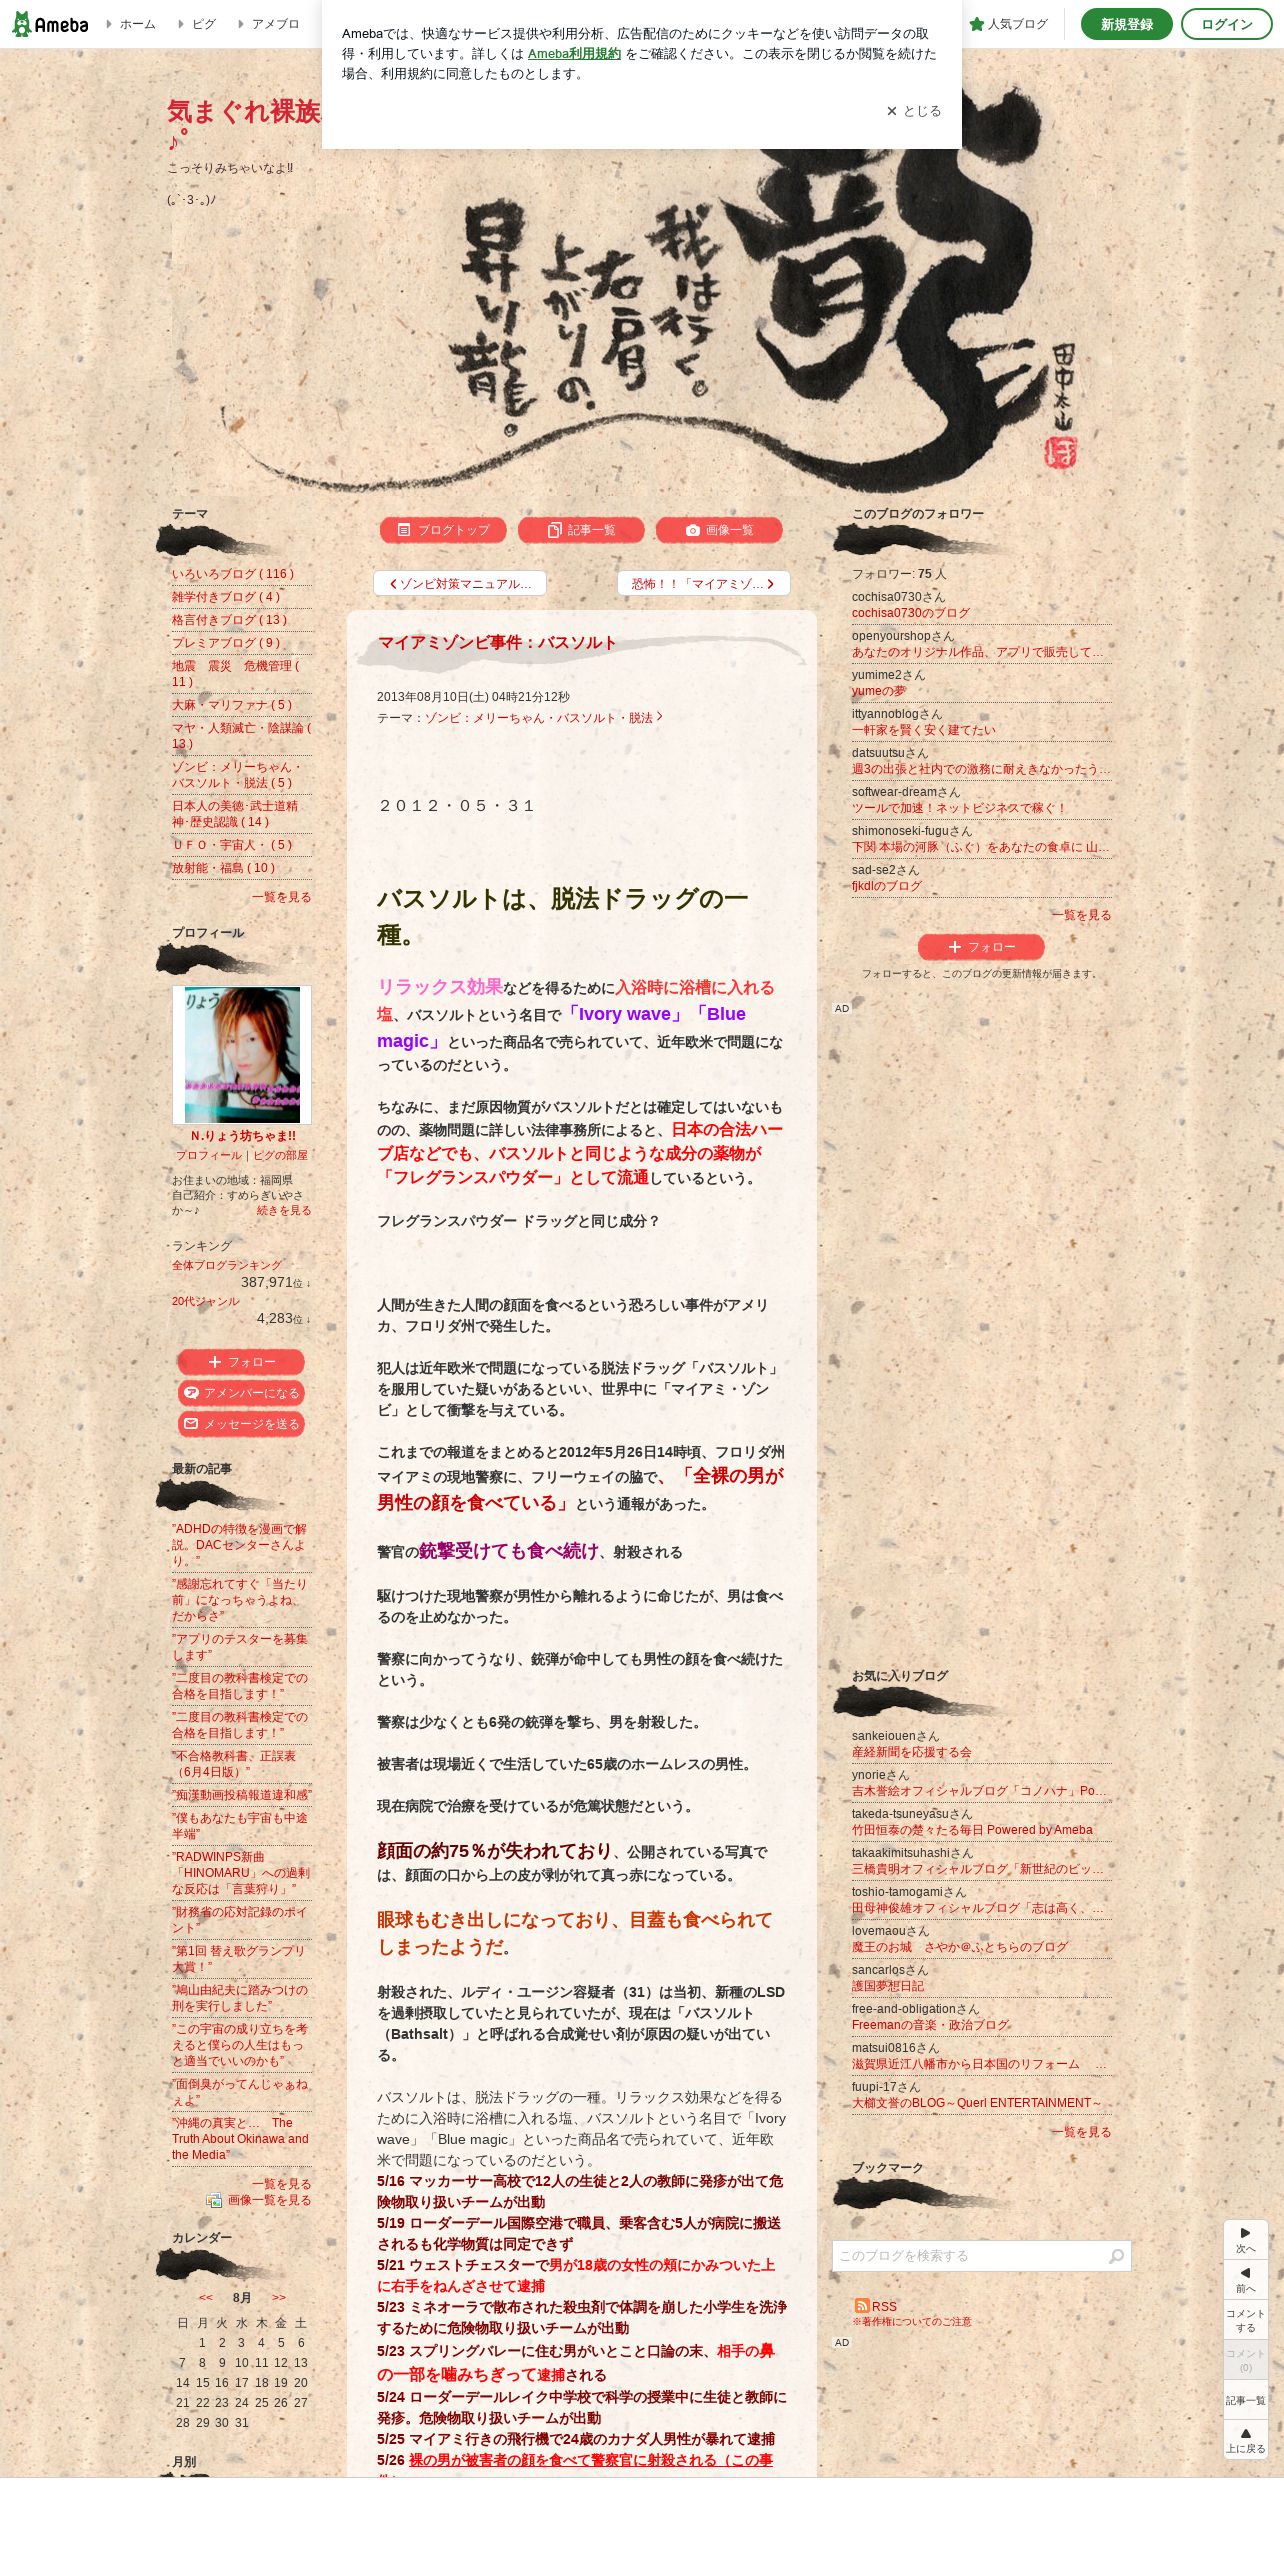 Ameba
ホーム
ピグ
アメブロ
人気ブログ
新規登録
ログイン
Amebaでは、快適なサービス提供や利用分析、広告配信のためにクッキーなどを使い訪問データの取
得・利用しています。詳しくは Ameba利用規約 をご確認ください。この表示を閉じるか閲覧を続けた
場合、利用規約に同意したものとします。
とじる
気まぐれ裸族
♪゜
こっそりみちゃいなよ!!
(｡`･3･｡)ﾉ
我は行く。
右肩
上がりの、
昇り龍。
龍
田中太山
テーマ
いろいろブログ ( 116 )
雑学付きブログ ( 4 )
格言付きブログ ( 13 )
プレミアブログ ( 9 )
地震　震災　危機管理 (
11 )
大麻・マリファナ ( 5 )
マヤ・人類滅亡・陰謀論 (
13 )
ゾンビ：メリーちゃん・
バスソルト・脱法 ( 5 )
日本人の美徳･武士道精
神･歴史認識 ( 14 )
ＵＦＯ・宇宙人・ ( 5 )
放射能・福島 ( 10 )
一覧を見る
プロフィール
りょう
Ｎ.りょう坊ちゃま!!
プロフィール｜ピグの部屋
お住まいの地域：福岡県
自己紹介：すめらぎいやさ
か～♪
続きを見る
ランキング
全体ブログランキング
387,971位 ↓
20代ジャンル
4,283位 ↓
フォロー
アメンバーになる
メッセージを送る
最新の記事
”ADHDの特徴を漫画で解
説。DACセンターさんよ
り。”
”感謝忘れてすぐ「当たり
前」になっちゃうよね、
だからさ”
”アプリのテスターを募集
します”
”二度目の教科書検定での
合格を目指します！”
”二度目の教科書検定での
合格を目指します！”
”不合格教科書、正誤表
（6月4日版）”
”痴漢動画投稿報道違和感”
”僕もあなたも宇宙も中途
半端”
”RADWINPS新曲
「HINOMARU」への過剰
な反応は「言葉狩り」”
”財務省の応対記録のポイ
ント”
”第1回 替え歌グランプリ
大賞！”
”鳩山由紀夫に踏みつけの
刑を実行しました”
”この宇宙の成り立ちを考
えると僕らの人生はもっ
と適当でいいのかも”
”面倒臭がってんじゃぁね
ぇよ”
”沖縄の真実と…　The
Truth About Okinawa and
the Media”
一覧を見る
画像一覧を見る
カレンダー
<< 8月 >>
日 月 火 水 木 金 土
1 2 3 4 5 6
7 8 9 10 11 12 13
14 15 16 17 18 19 20
21 22 23 24 25 26 27
28 29 30 31
月別
ブログトップ
記事一覧
画像一覧
ゾンビ対策マニュアル…
恐怖！！「マイアミゾ…
マイアミゾンビ事件：バスソルト
2013年08月10日(土) 04時21分12秒
テーマ：ゾンビ：メリーちゃん・バスソルト・脱法
２０１２・０５・３１
バスソルトは、脱法ドラッグの一
種。
リラックス効果などを得るために入浴時に浴槽に入れる
塩、バスソルトという名目で「Ivory wave」「Blue
magic」といった商品名で売られていて、近年欧米で問題にな
っているのだという。
ちなみに、まだ原因物質がバスソルトだとは確定してはいないも
のの、薬物問題に詳しい法律事務所によると、日本の合法ハー
ブ店などでも、バスソルトと同じような成分の薬物が
「フレグランスパウダー」として流通しているという。
フレグランスパウダー ドラッグと同じ成分？
人間が生きた人間の顔面を食べるという恐ろしい事件がアメリ
カ、フロリダ州で発生した。
犯人は近年欧米で問題になっている脱法ドラッグ「バスソルト」
を服用していた疑いがあるといい、世界中に「マイアミ・ゾン
ビ」として衝撃を与えている。
これまでの報道をまとめると2012年5月26日14時頃、フロリダ州
マイアミの現地警察に、フリーウェイの脇で、「全裸の男が
男性の顔を食べている」という通報があった。
警官の銃撃受けても食べ続け、射殺される
駆けつけた現地警察が男性から離れるように命じたが、男は食べ
るのを止めなかった。
警察に向かってうなり、銃弾が命中しても男性の顔を食べ続けた
という。
警察は少なくとも6発の銃弾を撃ち、男を射殺した。
被害者は現場近くで生活していた65歳のホームレスの男性。
現在病院で治療を受けているが危篤状態だという。
顔面の約75％が失われており、公開されている写真で
は、顔面の口から上の皮が剥がれて真っ赤になっている。
眼球もむき出しになっており、目蓋も食べられて
しまったようだ。
射殺された、ルディ・ユージン容疑者（31）は当初、新種のLSD
を過剰摂取していたと見られていたが、現在は「バスソルト
（Bathsalt）」と呼ばれる合成覚せい剤が原因の疑いが出てい
る。
バスソルトは、脱法ドラッグの一種。リラックス効果などを得る
ために入浴時に浴槽に入れる塩、バスソルトという名目で「Ivory
wave」「Blue magic」といった商品名で売られていて、近年欧
米で問題になっているのだという。
5/16 マッカーサー高校で12人の生徒と2人の教師に発疹が出て危
険物取り扱いチームが出動
5/19 ローダーデール国際空港で職員、乗客含む5人が病院に搬送
されるも化学物質は同定できず
5/21 ウェストチェスターで男が18歳の女性の頬にかみついた上
に右手をねんざさせて逮捕
5/23 ミネオーラで散布された殺虫剤で体調を崩した小学生を洗浄
するために危険物取り扱いチームが出動
5/23 スプリングバレーに住む男がいとこと口論の末、相手の鼻
の一部を噛みちぎって逮捕される
5/24 ローダーデールレイク中学校で科学の授業中に生徒と教師に
発疹。危険物取り扱いチームが出動
5/25 マイアミ行きの飛行機で24歳のカナダ人男性が暴れて逮捕
5/26 裸の男が被害者の顔を食べて警察官に射殺される（この事
このブログのフォロワー
フォロワー: 75 人
cochisa0730さん
cochisa0730のブログ
openyourshopさん
あなたのオリジナル作品、アプリで販売して…
yumime2さん
yumeの夢
ittyannoblogさん
一軒家を賢く安く建てたい
datsuutsuさん
週3の出張と社内での激務に耐えきなかったう…
softwear-dreamさん
ツールで加速！ネットビジネスで稼ぐ！
shimonoseki-fuguさん
下関 本場の河豚（ふぐ）をあなたの食卓に 山…
sad-se2さん
fjkdlのブログ
一覧を見る
フォロー
フォローすると、このブログの更新情報が届きます。
AD
お気に入りブログ
sankeiouenさん
産経新聞を応援する会
ynorieさん
吉木誉絵オフィシャルブログ「コノハナ」Po…
takeda-tsuneyasuさん
竹田恒泰の楚々たる毎日 Powered by Ameba
takaakimitsuhashiさん
三橋貴明オフィシャルブログ「新世紀のビッ…
toshio-tamogamiさん
田母神俊雄オフィシャルブログ「志は高く、…
lovemaouさん
魔王のお城　さやか＠ふとちらのブログ
sancarlosさん
護国夢想日記
free-and-obligationさん
Freemanの音楽・政治ブログ
matsui0816さん
滋賀県近江八幡市から日本国のリフォーム　…
fuupi-17さん
大櫛文誉のBLOG～Querl ENTERTAINMENT～
一覧を見る
ブックマーク
このブログを検索する
RSS
※著作権についてのご注意
AD
次へ
前へ
コメント
する
コメント
(0)
記事一覧
上に戻る